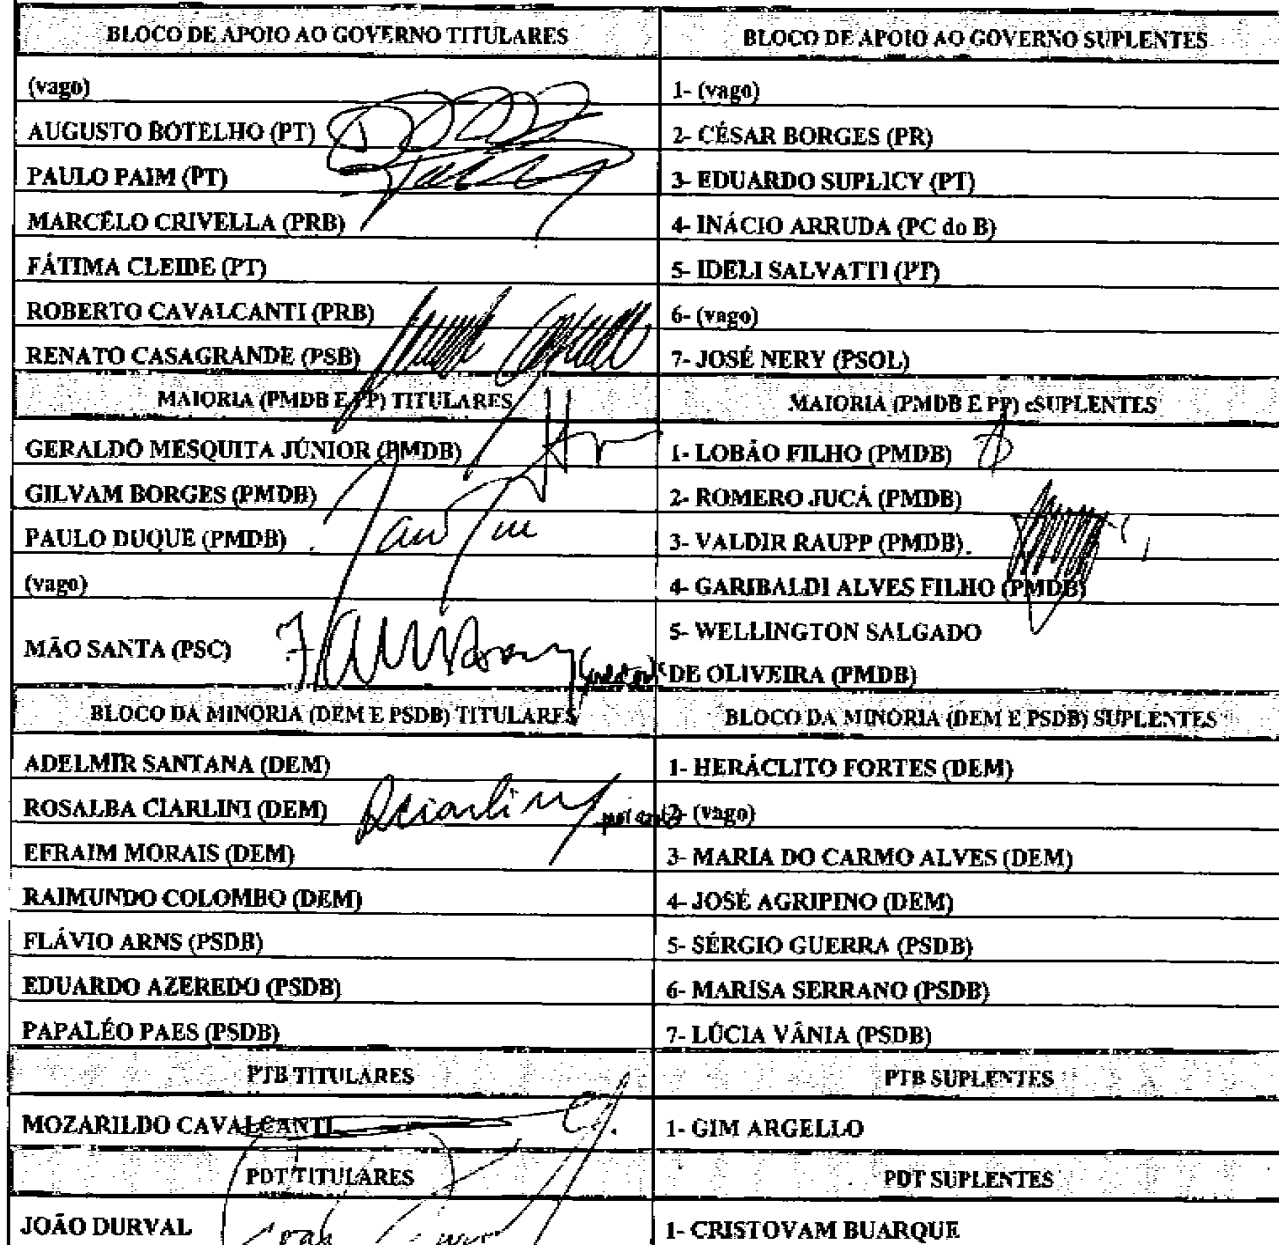 BLOCO DE APOIO AO GOVERNO TITULARES BLOCO DE APOIO AO GOVERNO SUPLENTES
(vago) 1- (vago)
AUGUSTO BOTELHO (PT) 2- CÉSAR BORGES (PR)
PAULO PAIM (PT) 3- EDUARDO SUPLICY (PT)
MARCELO CRIVELLA (PRB) 4- INÁCIO ARRUDA (PC do B)
FÁTIMA CLEIDE (PT) 5- IDELI SALVATTI (PT)
ROBERTO CAVALCANTI (PRB) 6- (vago)
RENATO CASAGRANDE (PSB) 7- JOSÉ NERY (PSOL)
MAIORIA (PMDB E PP) TITULARES MAIORIA (PMDB E PP) eSUPLENTES
GERALDO MESQUITA JÚNIOR (PMDB) 1- LOBÃO FILHO (PMDB)
GILVAM BORGES (PMDB) 2- ROMERO JUCÁ (PMDB)
PAULO DUQUE (PMDB) 3- VALDIR RAUPP (PMDB)
(vago) 4- GARIBALDI ALVES FILHO (PMDB)
MÃO SANTA (PSC) 5- WELLINGTON SALGADO
DE OLIVEIRA (PMDB)
BLOCO DA MINORIA (DEM E PSDB) TITULARES BLOCO DA MINORIA (DEM E PSDB) SUPLENTES
ADELMIR SANTANA (DEM) 1- HERÁCLITO FORTES (DEM)
ROSALBA CIARLINI (DEM) RCiarlini 2- (vago)
EFRAIM MORAIS (DEM) 3- MARIA DO CARMO ALVES (DEM)
RAIMUNDO COLOMBO (DEM) 4- JOSÉ AGRIPINO (DEM)
FLÁVIO ARNS (PSDB) 5- SÉRGIO GUERRA (PSDB)
EDUARDO AZEREDO (PSDB) 6- MARISA SERRANO (PSDB)
PAPALÉO PAES (PSDB) 7- LÚCIA VÂNIA (PSDB)
PTB TITULARES PTB SUPLENTES
MOZARILDO CAVALCANTI 1- GIM ARGELLO
PDT TITULARES PDT SUPLENTES
JOÃO DURVAL 1- CRISTOVAM BUARQUE